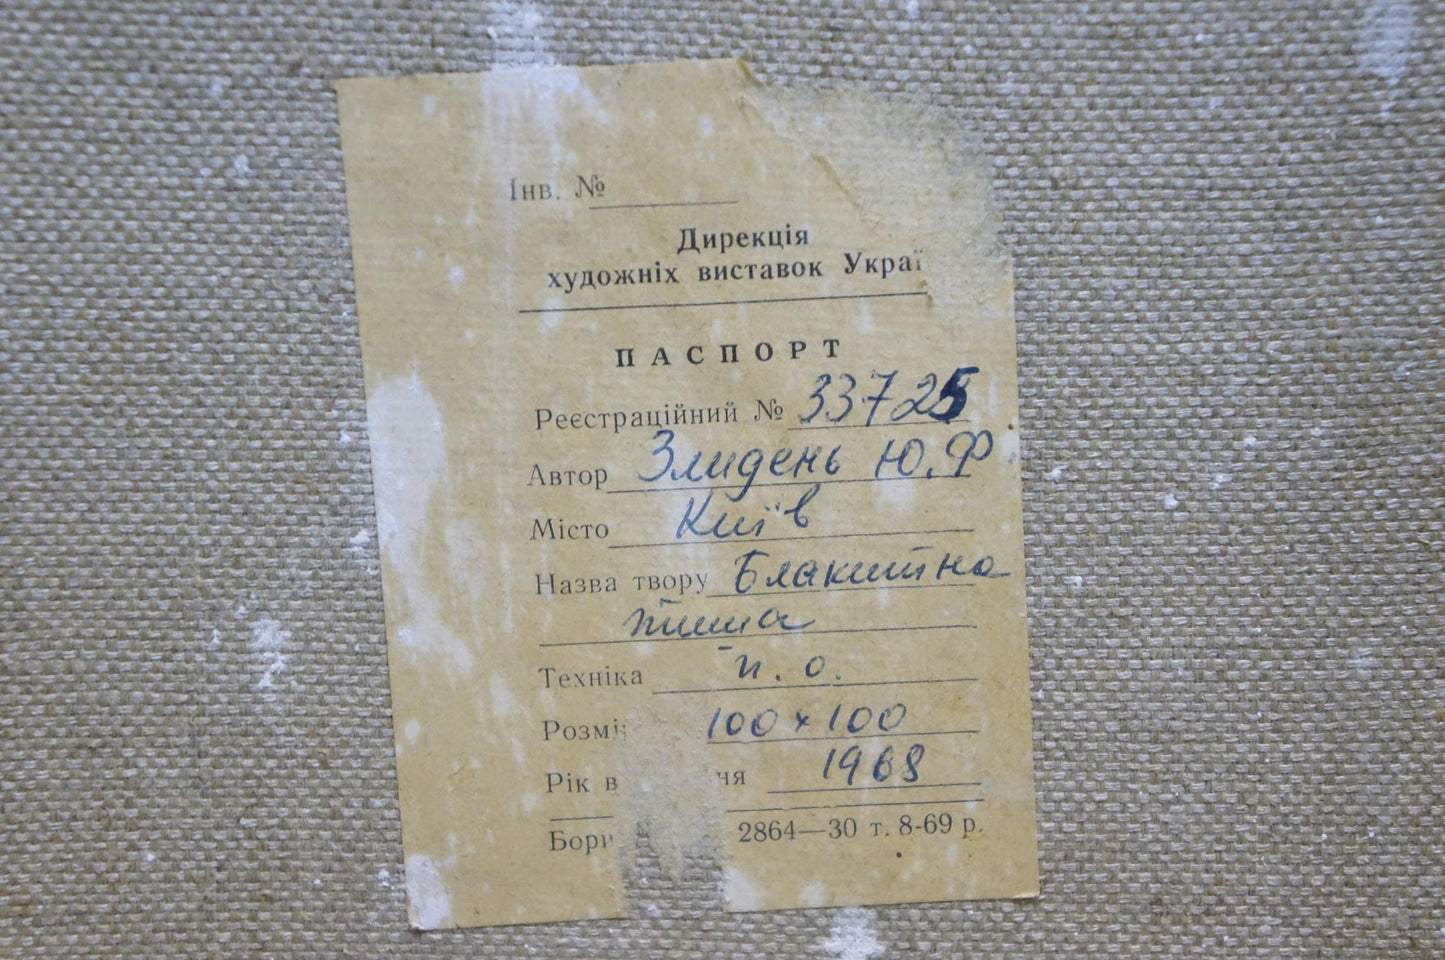 Інв. №
Дирекція
художніх виставок Украї
ПАСПОРТ
Реєстраційний № 33725
Автор Злидень Ю.Ф
Місто Київ
Назва твору Блакитна
тиша
Техніка п. о.
Розмі 100 х 100
Рік в ня 1968
Бори 2864—30 т. 8-69 р.